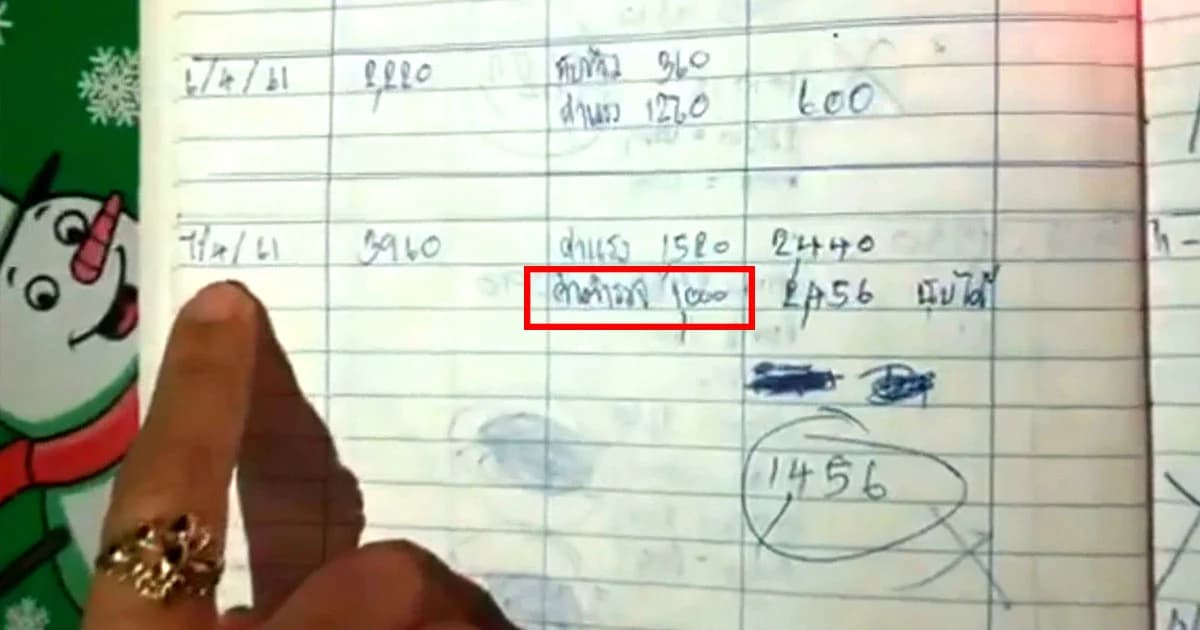 6/4/61 2,220 กับข้าว 360
ค่าแรง 1260 600
7/4/61 3960 ค่าแรง 1,520 2,440
ค่าตำรวจ 1,000 2,456 นับได้
1,456